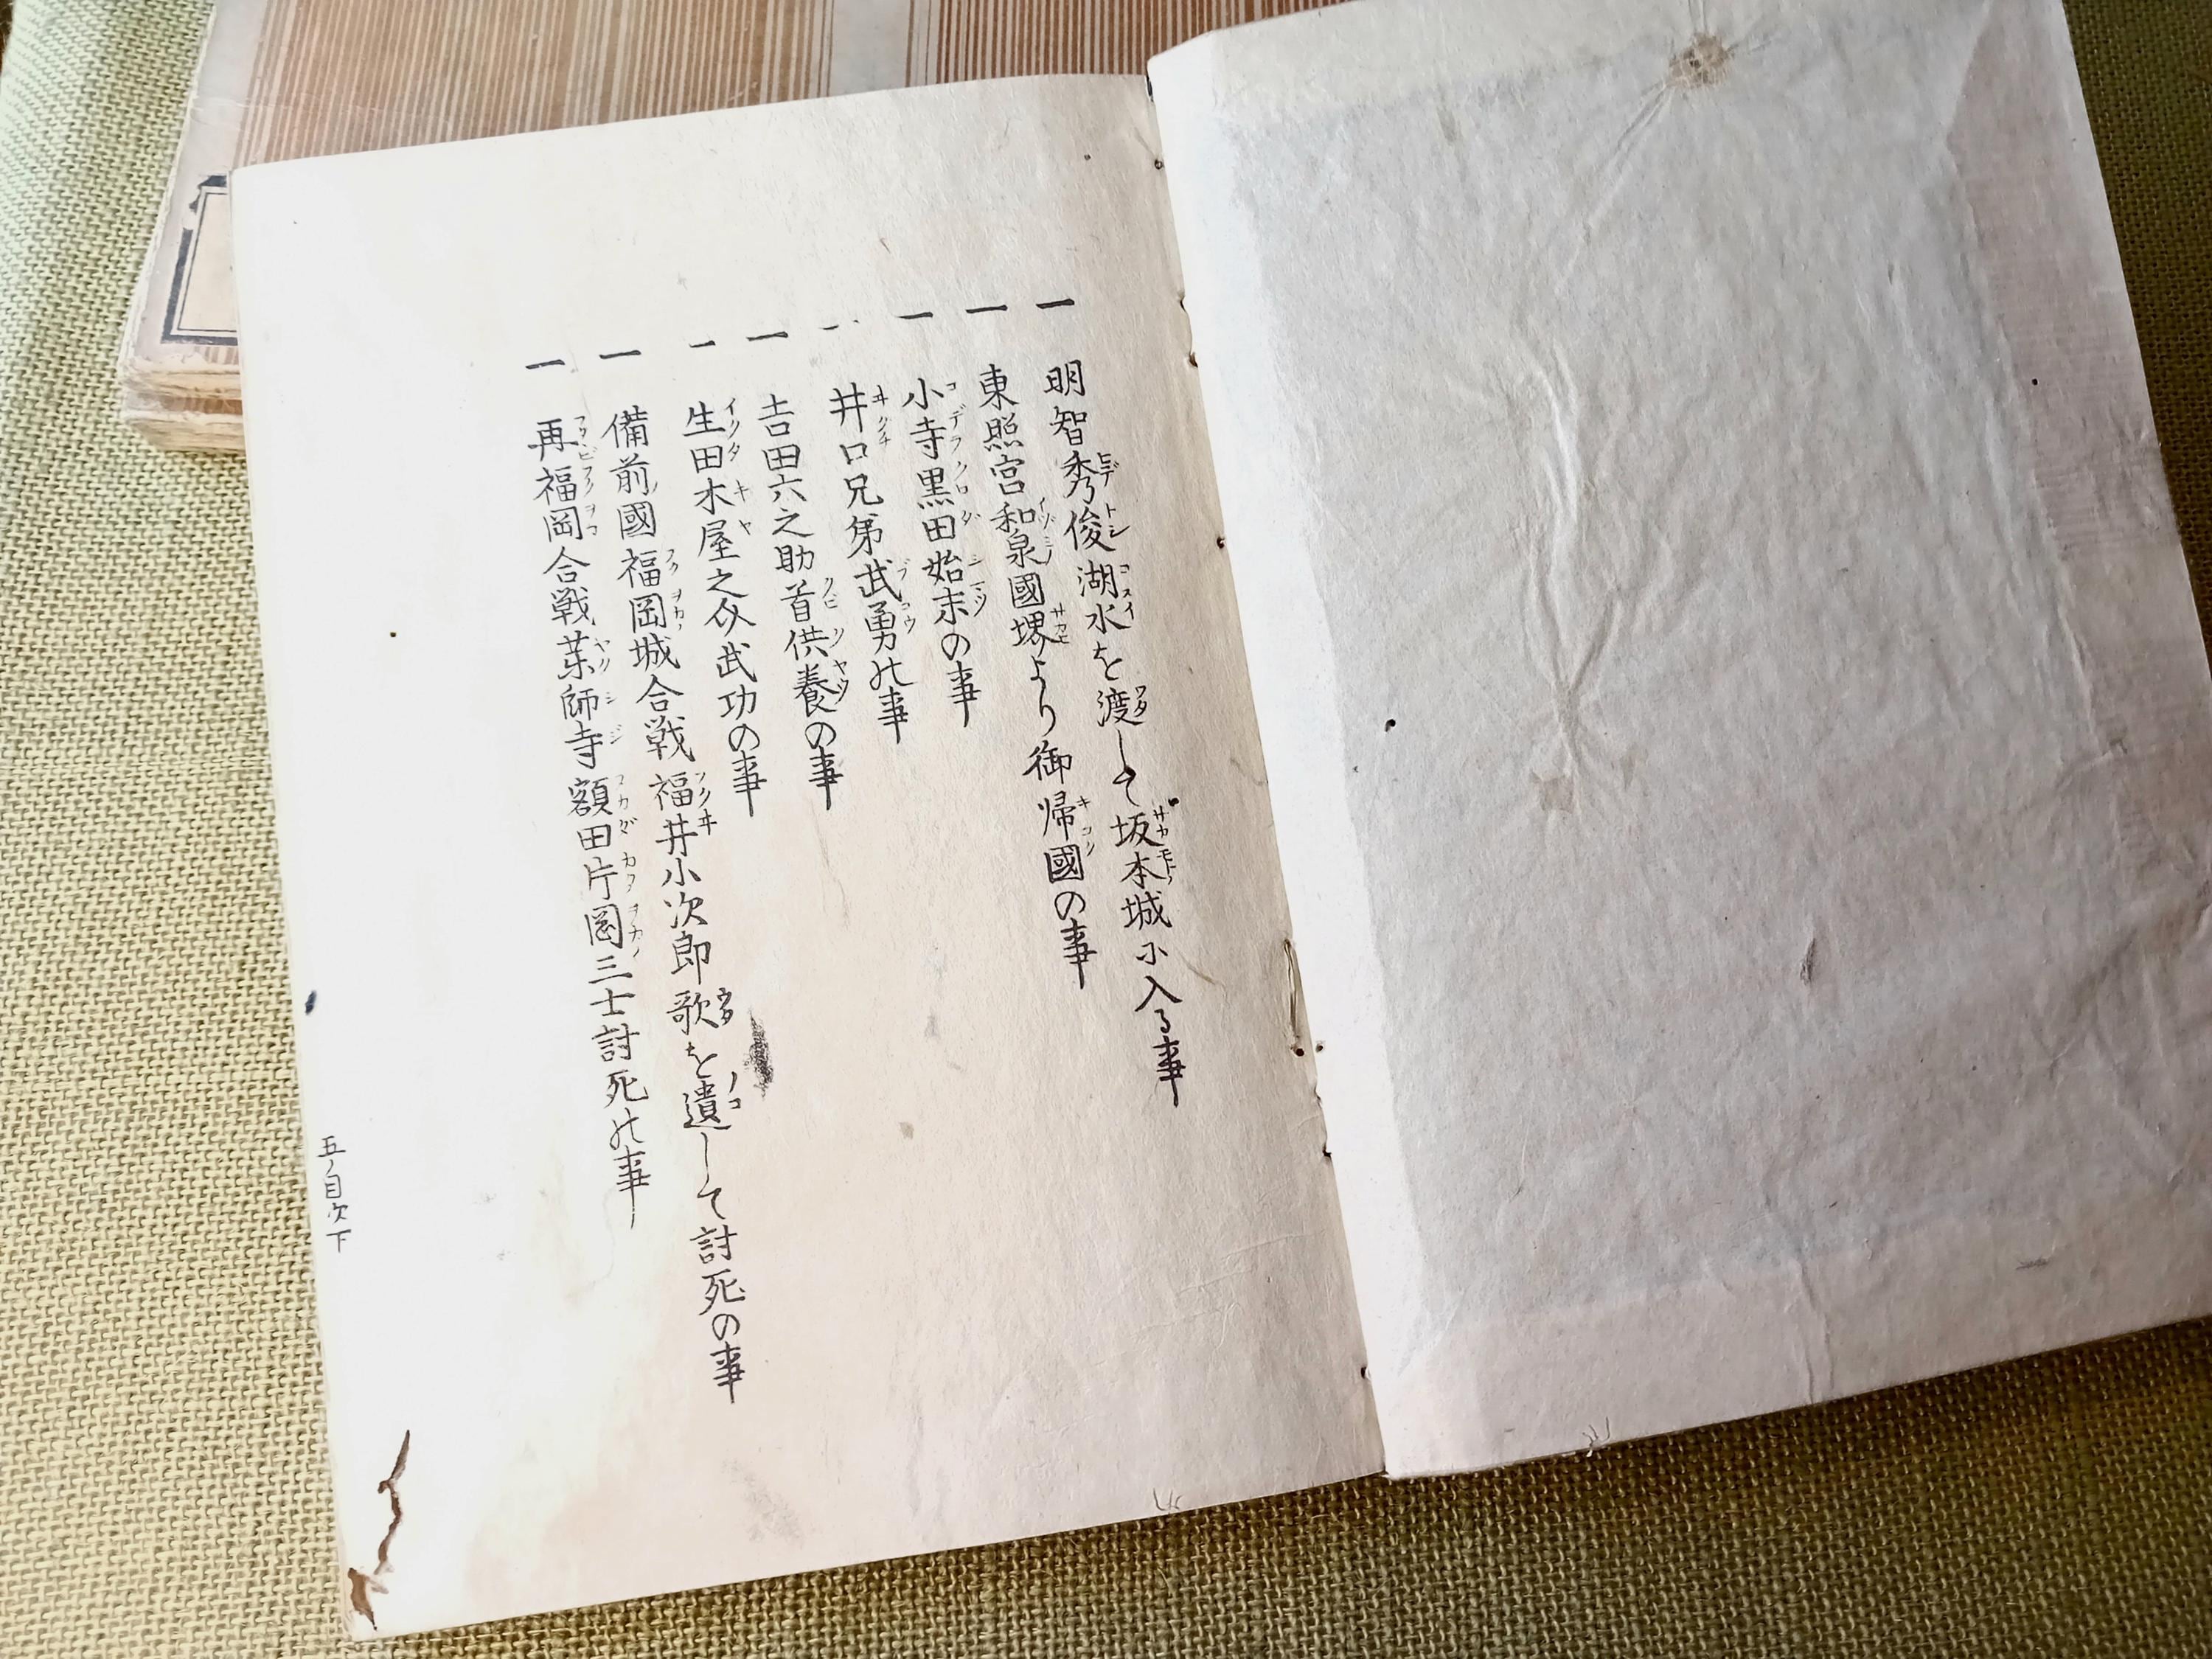 一 明智秀俊湖水を渡して坂本城に入る事
一 東照宮和泉國堺より御帰國の事
一 小寺黒田始末の事
一 井口兄弟武勇の事
一 吉田六之助首供養の事
一 生田木屋之介武功の事
一 備前國福岡城合戦福井小次郎歌を遺して討死の事
一 再福岡合戦薬師寺額田片岡三士討死の事
五ノ目次下